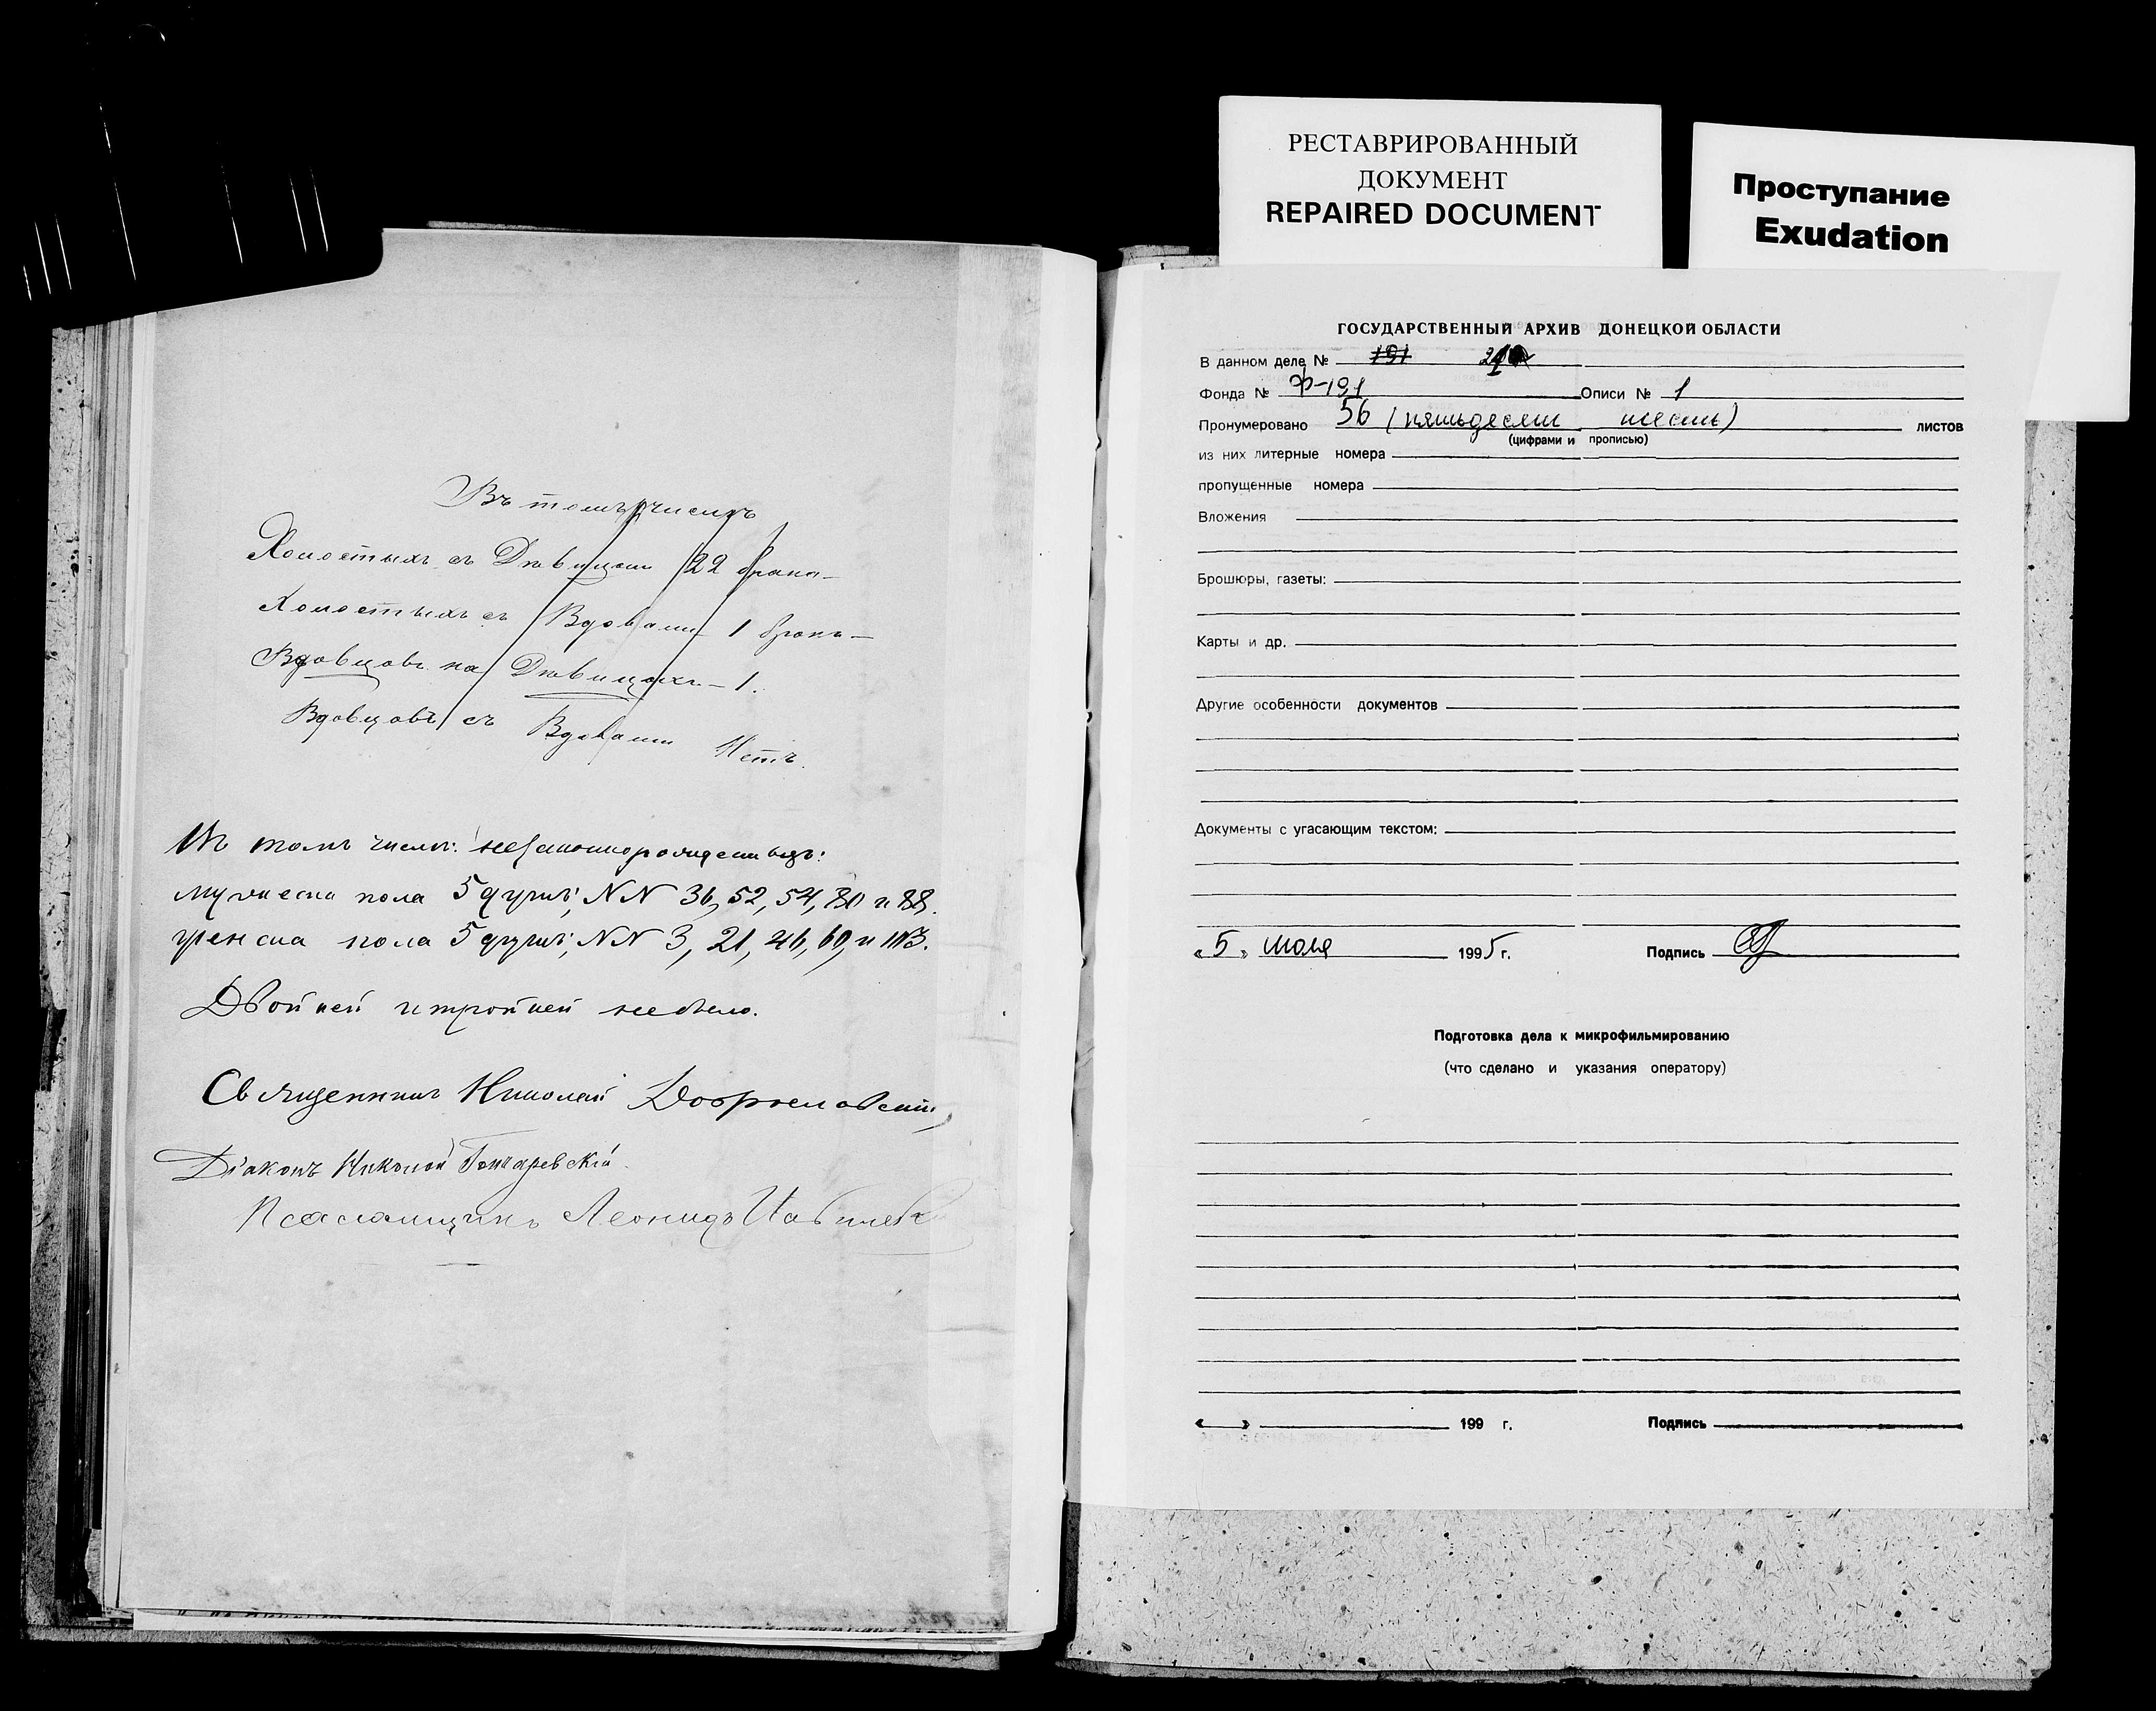 Въ томъ числѣ
Холостыхъ съ Дѣвицами 22 брака
Холостыхъ съ Вдовами 1 бракъ
Вдовцовъ на Дѣвицахъ 1.
Вдовцовъ съ Вдовами Нетъ.
Въ томъ числѣ: незаконнорожденныхъ:
мужеска пола 5 душъ; NN 36, 52, 54, 80 и 88.
женска пола 5 душъ; NN 3, 21, 46, 60, и 103.
Двойней и тройней не было.
Священникъ Николай
Діаконъ Николай Гончаревскій
Псаломщикъ Леонидъ
РЕСТАВРИРОВАННЫЙ
ДОКУМЕНТ
REPAIRED DOCUMENT
Проступание
Exudation
ГОСУДАРСТВЕННЫЙ АРХИВ ДОНЕЦКОЙ ОБЛАСТИ
В данном деле № 191
Фонда № Ф-191 Описи № 1
Пронумеровано 56 (пятьдесят шесть) листов
(цифрами и прописью)
из них литерные номера
пропущенные номера
Вложения
Брошюры, газеты:
Карты и др.
Другие особенности документов
Документы с угасающим текстом:
« 5 » июля 1995 г. Подпись
Подготовка дела к микрофильмированию
(что сделано и указания оператору)
« » 199 г. Подпись